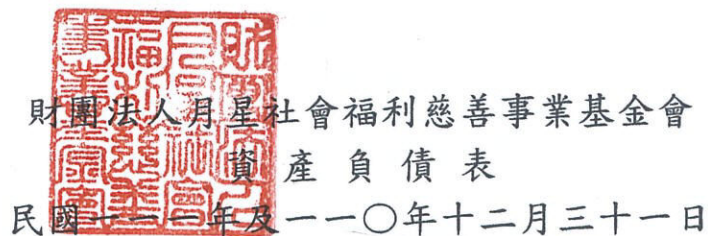 財團法人月星社會福利慈善事業基金會
資產負債表
民國一一一年及一一〇年十二月三十一日